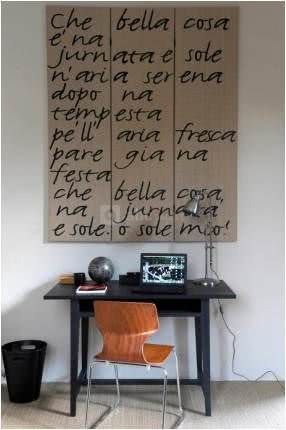 Che bella cosa
e' na
jurnata e sole
n'aria serena
dopo na
tempesta
pe ll' aria fresca
pare gia na
festa
che bella cosa,
na jurnata
e sole. o sole mio!